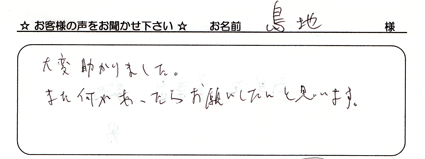 ☆ お客様の声をお聞かせ下さい ☆ お名前 島地 様
大変助かりました。
また何かあったらお願いしたいと思います。